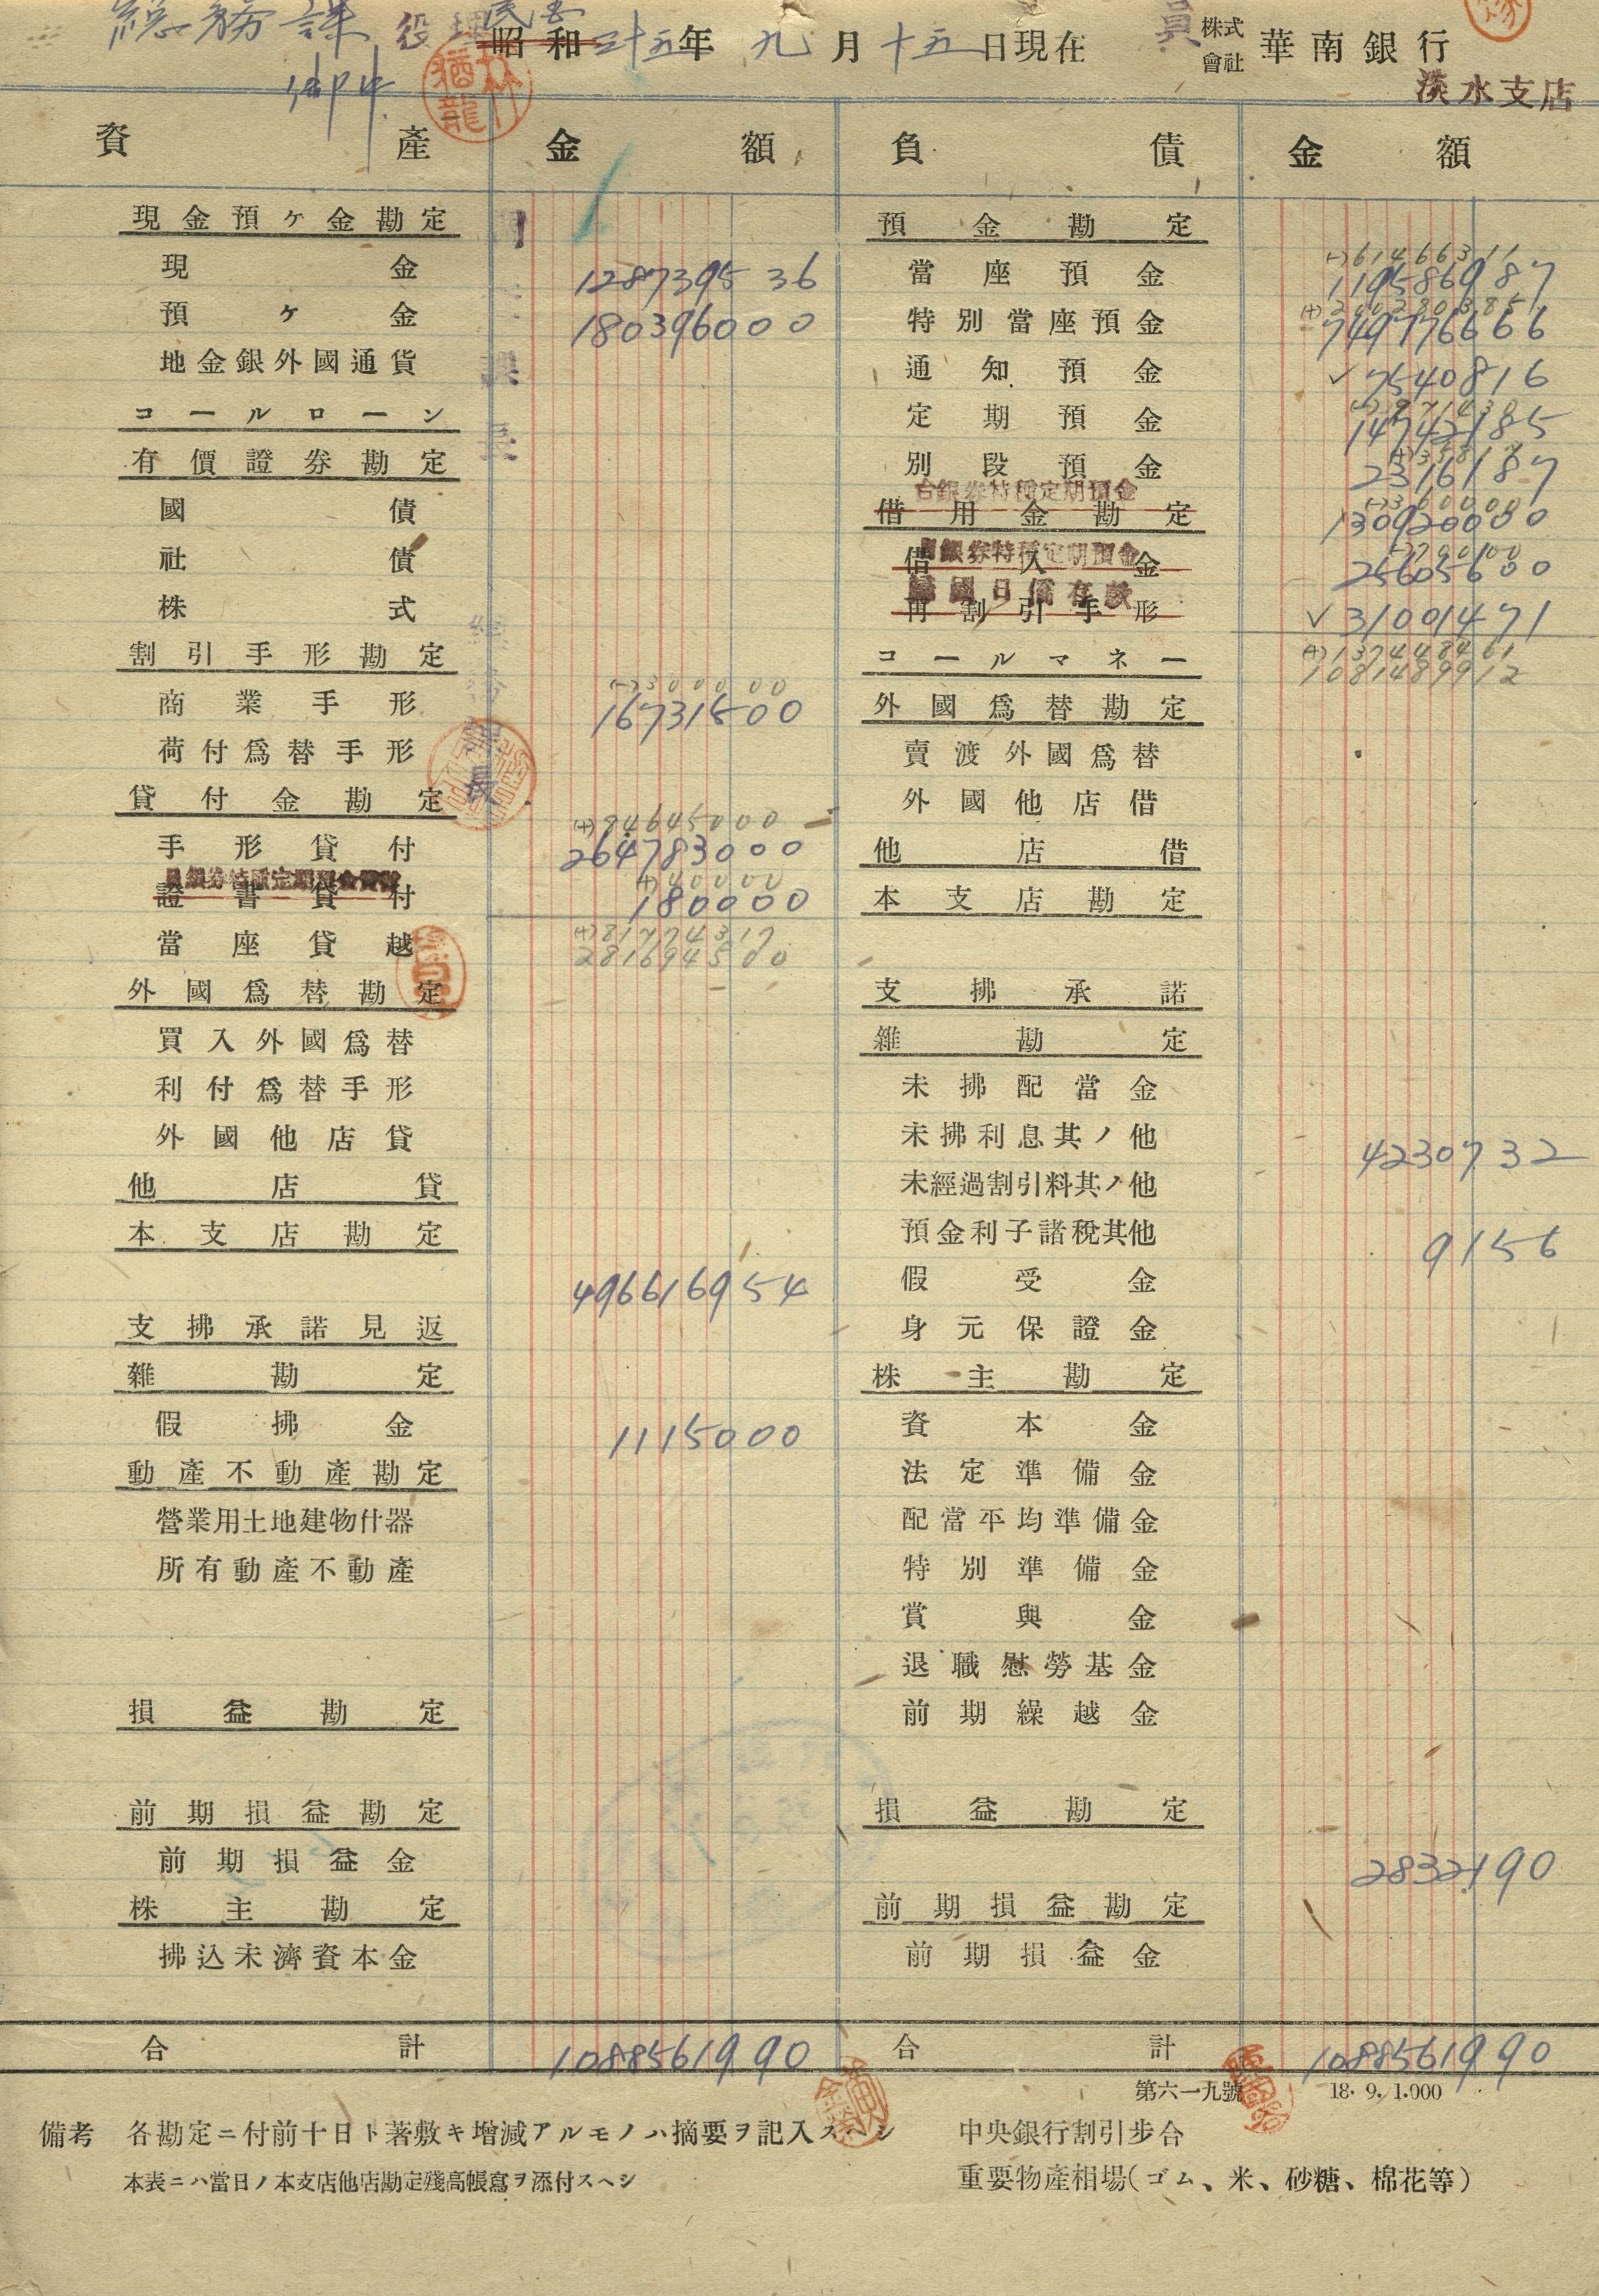 總務課 御中
民國
昭和三十五年 九月 十五日現在
株式會社 華南銀行
淡水支店
資產 金額 負債 金額
現金預ケ金勘定
現金 1287395 36
預ケ金 1803960 00
地金銀外國通貨
コールローン
有價證券勘定
國債
社債
株式
割引手形勘定
(-)3000 00
商業手形 167315 00
荷付爲替手形
貸付金勘定
(+)846450 00
手形貸付 2647830 00
(+)400 00
證書貸付 1800 00
(+)817743 17
當座貸越 2816945 00
外國爲替勘定
買入外國爲替
利付爲替手形
外國他店貸
他店貸
本支店勘定
4966169 54
支拂承諾見返
雜勘定
假拂金 11150 00
動產不動產勘定
營業用土地建物什器
所有動產不動產
損益勘定
前期損益勘定
前期損益金
株主勘定
拂込未濟資本金
合計 10885619 90
預金勘定
(-)614663 11
當座預金 1195869 87
(+)
特別當座預金 7497766 66
通知預金 ✓ 75408 16
定期預金 147421 85
別段預金 23161 87
台銀券特種定期預金
借用金勘定 1309200 00
銀券特種定期預金
借入金 256056 00
歸國日僑存款
再割引手形 ✓ 310014 71
コールマネー (+)1374484 61
10814899 12
外國爲替勘定
賣渡外國爲替
外國他店借
他店借
本支店勘定
支拂承諾
雜勘定
未拂配當金
未拂利息其ノ他 42307 32
未經過割引料其ノ他
預金利子諸稅其他 91 56
假受金
身元保證金
株主勘定
資本金
法定準備金
配當平均準備金
特別準備金
賞與金
退職慰勞基金
前期繰越金
損益勘定
28321 90
前期損益勘定
前期損益金
合計 10885619 90
第六一九號 18.9.1.000
備考 各勘定ニ付前十日ト著敷キ增減アルモノハ摘要ヲ記入スヘシ
本表ニハ當日ノ本支店他店勘定殘高帳寫ヲ添付スヘシ
中央銀行割引步合
重要物產相場(ゴム、米、砂糖、棉花等)